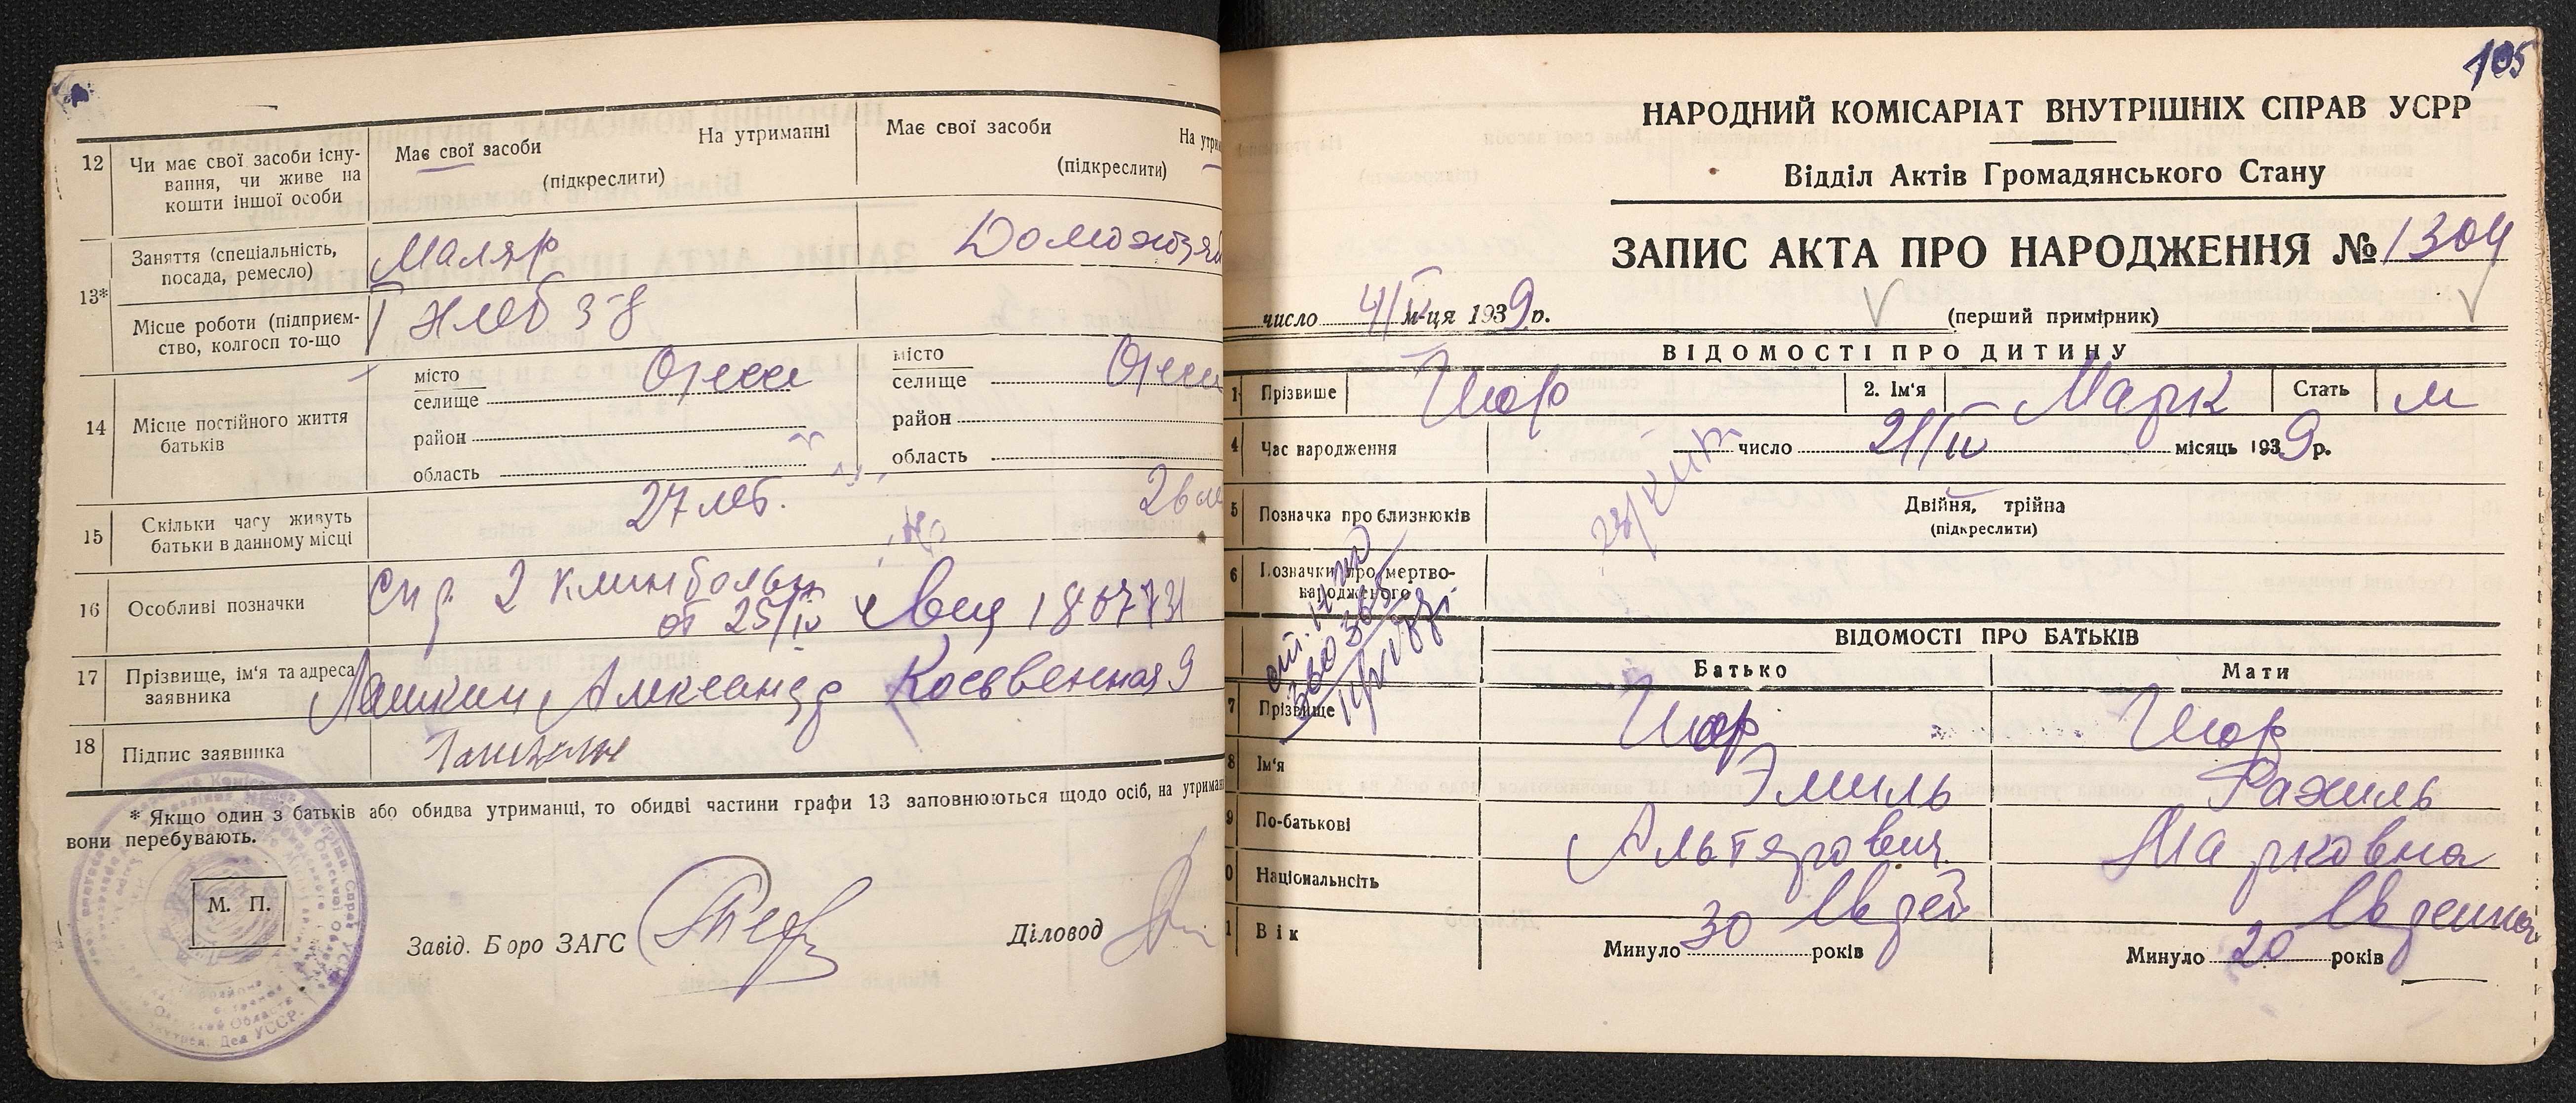 12 Чи має свої засоби існу-
вання, чи живе на
кошти іншої особи
Має свої засоби На утриманні
(підкреслити)
Має свої засоби На утрим
(підкреслити)
13* Заняття (спеціальність,
посада, ремесло)
Маляр
Домохозяй
Місце роботи (підприєм-
ство, колгосп то-що
Хлеб з-д
14 Місце постійного життя
батьків
місто
селище Одесса
район
область
місто
селище Одесс
район
область
15 Скільки часу живуть
батьки в данному місці
27 лет.
16 Особливі позначки
спр. 2 клин больн
от 25/IV
17 Прізвище, ім'я та адреса
заявника
Лашкин Александр Косвенная 9
18 Підпис заявника
Лашкин
* Якщо один з батьків або обидва утриманці, то обидві частини графи 13 заповнюються щодо осіб, на утриман
вони перебувають.
М. П.
Завід. Бюро ЗАГС
Діловод
105
НАРОДНИЙ КОМІСАРІАТ ВНУТРІШНІХ СПРАВ УСРР
Відділ Актів Громадянського Стану
ЗАПИС АКТА ПРО НАРОДЖЕННЯ № 1304
число 4/V м-ця 1939р.
(перший примірник)
ВІДОМОСТІ ПРО ДИТИНУ
1 Прізвише Шор 2. Ім'я Марк Стать м
4 Час народження число 21/IV місяць 1939р.
5 Позначка про близнюків
Двійня, трійна
(підкреслити)
6 Позначки про мертво-
народженого
ВІДОМОСТІ ПРО БАТЬКІВ
Батько Мати
7 Прізвище Шор Шор
8 Ім'я Эмиль Рахиль
9 По-батькові Альтерович Марковна
0 Національнсіть Еврей Еврейка
1 Вік Минуло 30 років Минуло 20 років